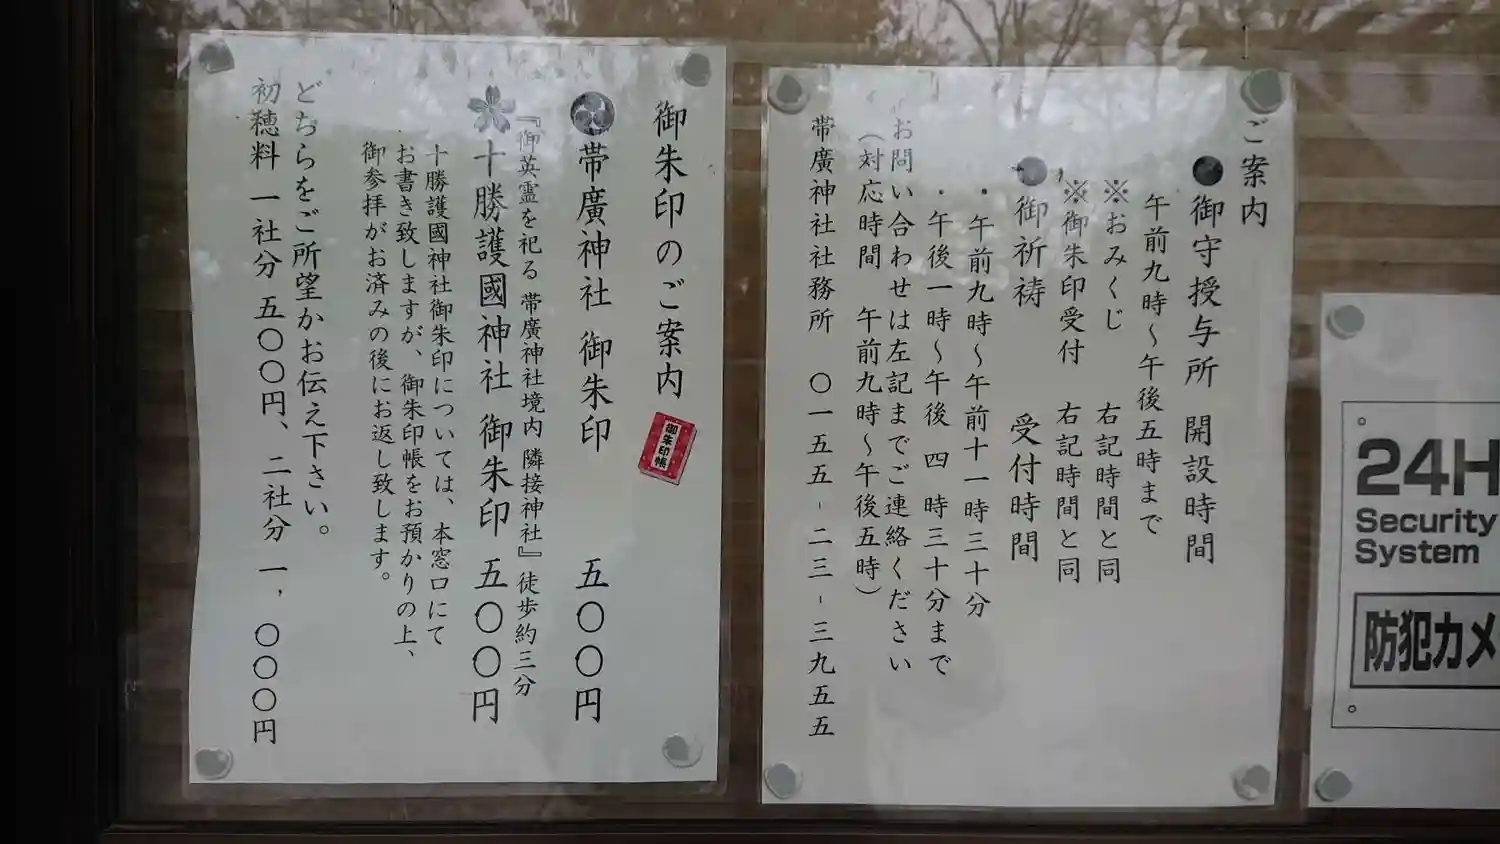 ご案内
●御守授与所 開設時間
午前九時～午後五時まで
※おみくじ 右記時間と同
※御朱印受付 右記時間と同
●御祈祷 受付時間
・午前九時～午前十一時三十分
・午後一時～午後四時三十分まで
お問い合わせは左記までご連絡ください
（対応時間 午前九時～午後五時）
帯廣神社社務所 〇一五五-二三-三九五五
御朱印のご案内
御朱印帳
帯廣神社 御朱印 五〇〇円
『御英霊を祀る 帯廣神社境内 隣接神社』徒歩約三分
十勝護國神社 御朱印 五〇〇円
十勝護國神社御朱印については、本窓口にて
お書き致しますが、御朱印帳をお預かりの上、
御参拝がお済みの後にお返し致します。
どちらをご所望かお伝え下さい。
初穂料 一社分 五〇〇円、二社分 一，〇〇〇円
24H
Security
System
防犯カメ